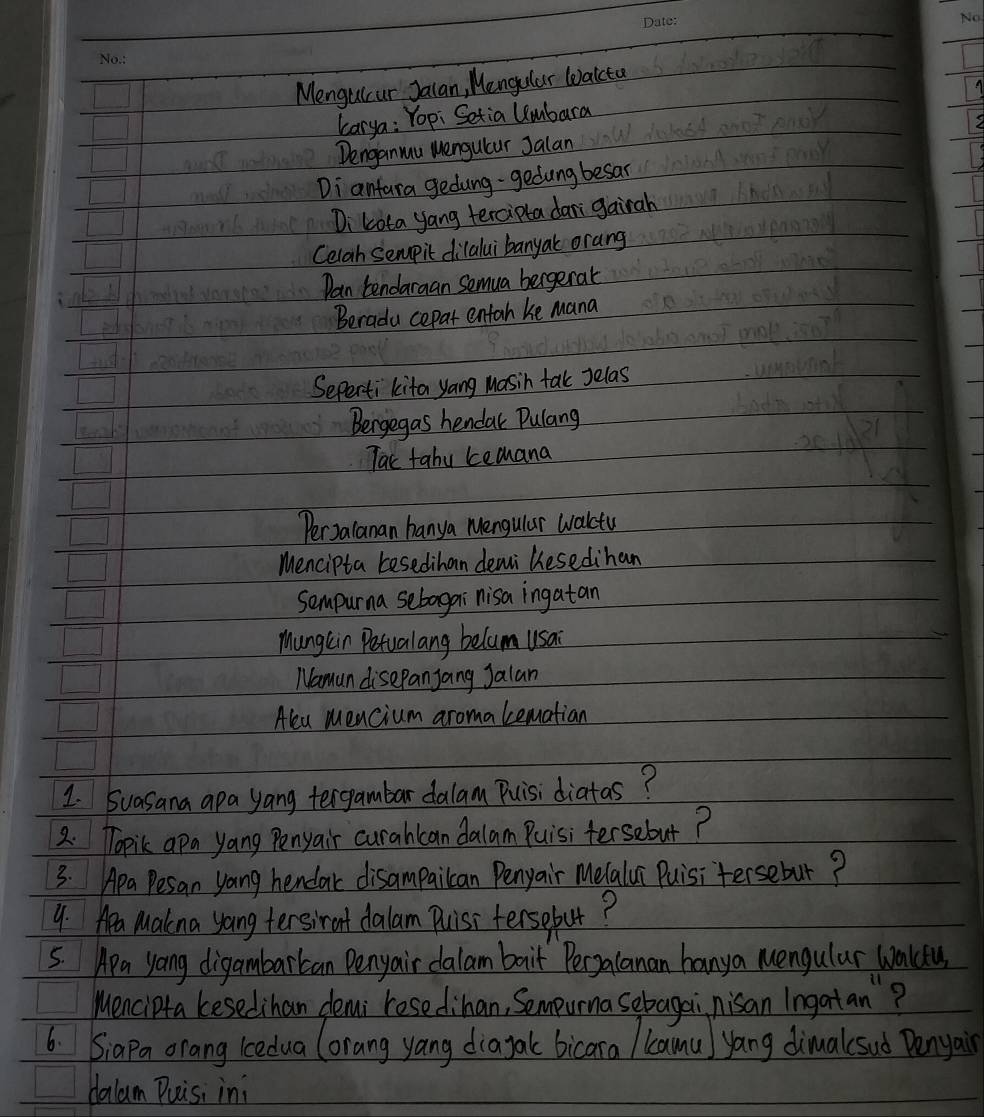 Date:
No.
No.:
Mengukur Jalan, Mengulur Waktu
Karya: Yopi Setia Umbara
Denganmu Mengukur Jalan
Di antara gedung-gedung besar
Di kota yang tercipta dari gairah
Celah sempit dilalui banyak orang
Dan kendaraan semua bergerak
Beradu cepat entah ke mana
Seperti kita yang masih tak jelas
Bergegas hendak Pulang
Tak tahu kemana
Perjalanan hanya mengulur waktu
Mencipta kesedihan demi kesedihan
Sempurna sebagai nisa ingatan
Mungkin Petualang belum usai
Namun disepanjang Jalan
Aku mencium aroma kematian
1. Suasana apa yang tergambar dalam Puisi diatas?
2. Topik apa yang Penyair curahkan dalam Puisi tersebut?
3. Apa Pesan yang hendak disampaikan Penyair melalui Puisi tersebut?
4. Apa makna yang tersirat dalam Puisi tersebut?
5. Apa yang digambarkan Penyair dalam bait "Perjalanan hanya mengulur waktu,
Mencipta kesedihan demi kesedihan, Sempurna sebagai nisan Ingatan"?
6. Siapa orang kedua (orang yang diajak bicara / kamu) yang dimaksud Penyair
dalam Puisi ini